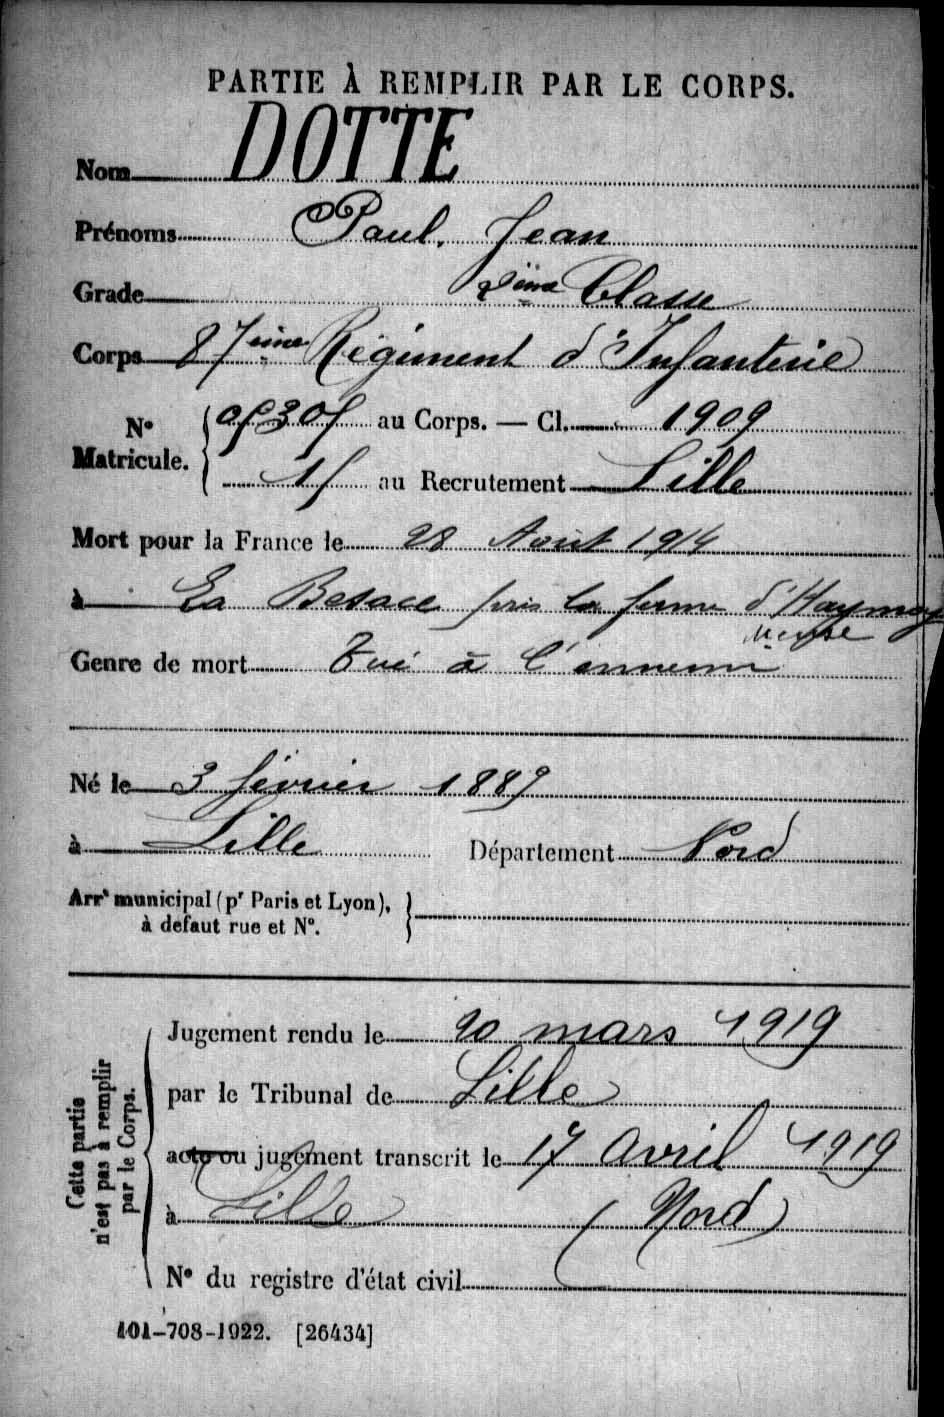 PARTIE À REMPLIR PAR LE CORPS.
Nom DOTTE
Prénoms Paul, Jean
Grade 2ème Classe
Corps 87ème Régiment d'Infanterie
N° Matricule. au Corps. — Cl. 1909
au Recrutement Lille
Mort pour la France le 28 Août 1914
à La Besace près la ferme
Meuse
Genre de mort Tué à l'ennemi
Né le 3 février 1889
à Lille Département Nord
Arrt municipal (pr Paris et Lyon),
à defaut rue et N°.
Cette partie
n'est pas à remplir
par le Corps.
Jugement rendu le 20 mars 1919
par le Tribunal de Lille
acte ou jugement transcrit le 17 Avril 1919
à Lille (Nord)
N° du registre d'état civil
101-708-1922. [26434]